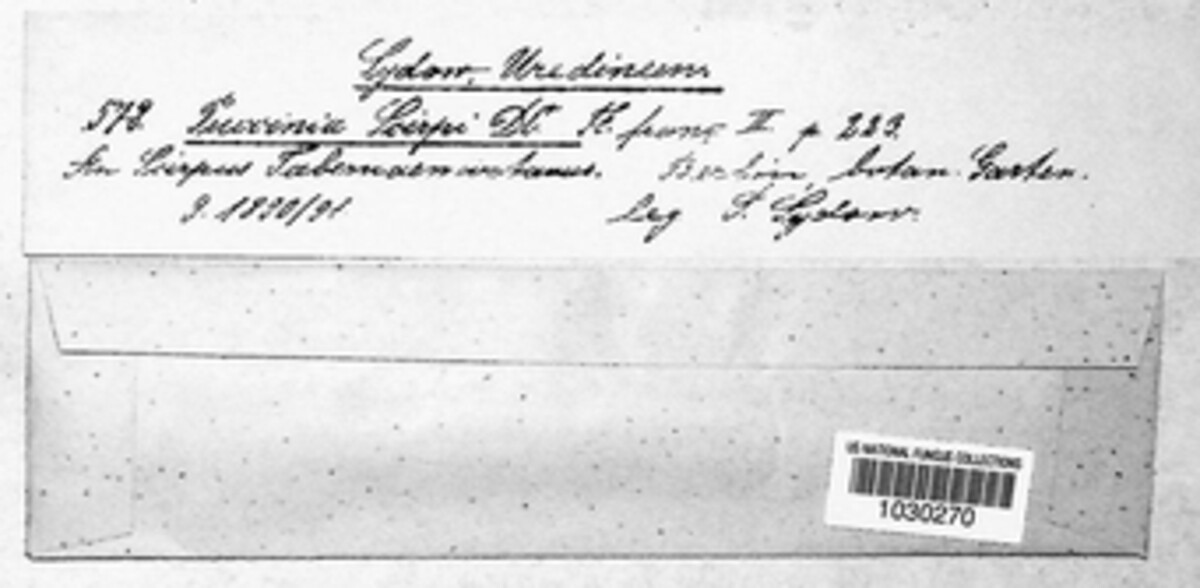 Sydow, Uredineen.
572. Puccinia Scirpi DC. Fl. franç. II p. 223.
An Scirpus Tabernaemontanus. Berlin, botan. Garten.
9. 1890/91 leg P. Sydow.
US NATIONAL FUNGUS COLLECTIONS
1030270